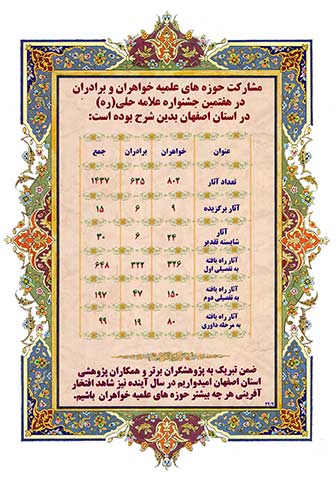 مشارکت حوزه های علمیه خواهران و برادران
در هفتمین جشنواره علامه حلی(ره)
در استان اصفهان بدین شرح بوده است:
عنوان خواهران برادران جمع
تعداد آثار ۸۰۲ ۶۳۵ ۱۴۳۷
آثار برگزیده ۹ ۶ ۱۵
آثار
شایسته تقدیر ۲۴ ۶ ۳۰
آثار راه یافته
به تفصیلی اول ۳۲۶ ۳۲۲ ۶۴۸
آثار راه یافته
به تفصیلی دوم ۱۵۰ ۴۷ ۱۹۷
آثار راه یافته
به مرحله داوری ۸۰ ۱۹ ۹۹
ضمن تبریک به پژوهشگران برتر و همکاران پژوهشی
استان اصفهان امیدواریم در سال آینده نیز شاهد افتخار
آفرینی هر چه بیشتر حوزه های علمیه خواهران باشیم.